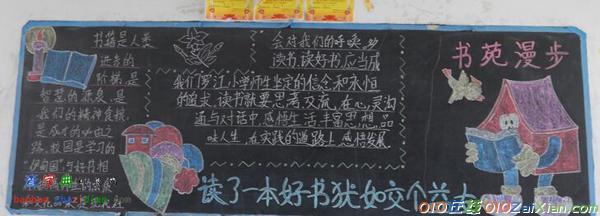 书籍是人类
进步的
阶梯,是
智慧的源泉,是
我们的精神食粮,
是成才的必由之
路,校园是学习的
会对我们的呼唤
读书,读好书应当成
我们罗江小学师生坚定的信念和永恒
的追求,读书就要思考交流,在心灵沟
通与对话中感悟生活,丰富思想,品
味人生,在实践的道路上感悟发展
书苑漫步
读了一本好书犹如交个益友
010在线010ZaiXian.com